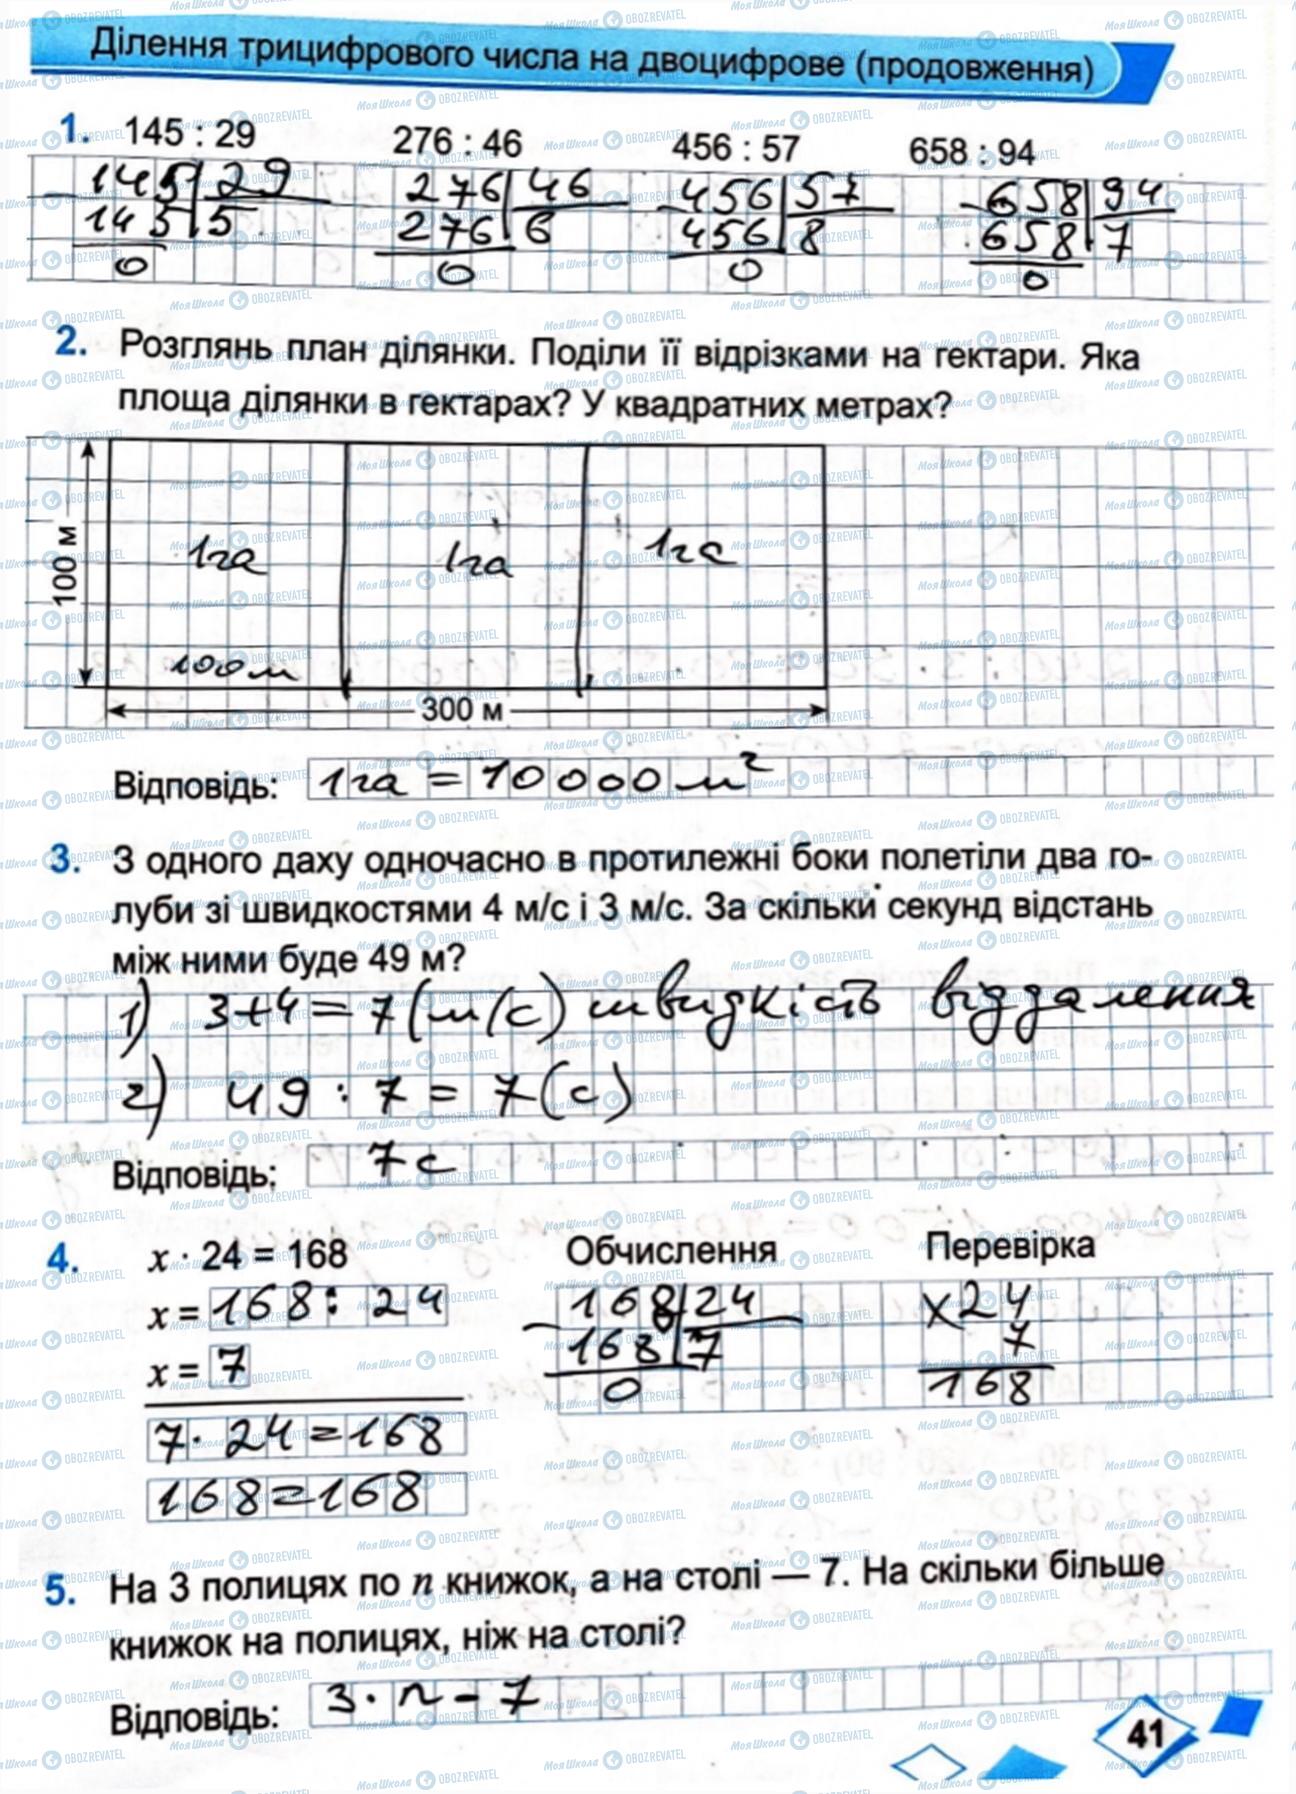 Ділення трицифрового числа на двоцифрове (продовження)
1. 145 : 29 276 : 46 456 : 57 658 : 94
145 29 276 46 456 57 658 94
145 5 276 6 456 8 658 7
0 0 0 0
2. Розглянь план ділянки. Поділи її відрізками на гектари. Яка
площа ділянки в гектарах? У квадратних метрах?
100 м
1га 1га 1га
100м
300 м
Відповідь: 1га = 10000 м²
3. З одного даху одночасно в протилежні боки полетіли два го-
луби зі швидкостями 4 м/с і 3 м/с. За скільки секунд відстань
між ними буде 49 м?
1) 3+4=7(м/с) швидкість віддалення
2) 49 : 7 = 7(с)
Відповідь: 7с
4. x · 24 = 168 Обчислення Перевірка
x = 168 : 24 168 24 x24
x = 7 168 7 7
0 168
7 · 24 = 168
168=168
5. На 3 полицях по n книжок, а на столі — 7. На скільки більше
книжок на полицях, ніж на столі?
Відповідь: 3 · n - 7
41
МояШкола OBOZREVATEL